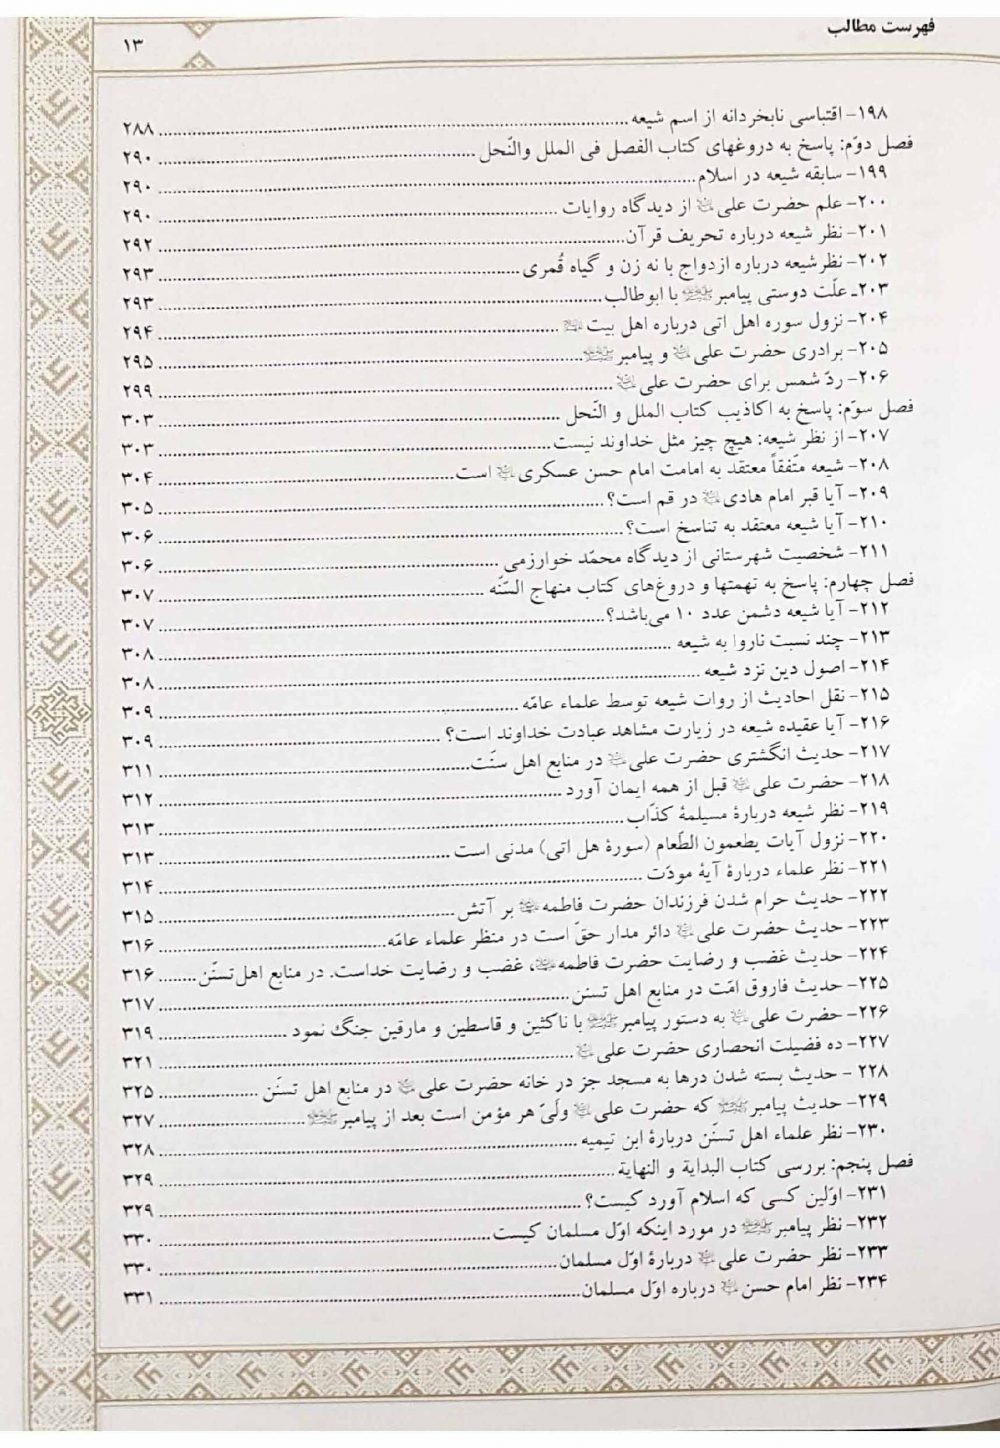 فهرست مطالب
۱۳
۱۹۸- اقتباسی نابخردانه از اسم شیعه ... ۲۸۸
فصل دوّم: پاسخ به دروغهای کتاب الفصل فی الملل والنّحل ... ۲۹۰
۱۹۹- سابقه شیعه در اسلام ... ۲۹۰
۲۰۰- علم حضرت علی از دیدگاه روایات ... ۲۹۰
۲۰۱- نظر شیعه درباره تحریف قرآن ... ۲۹۲
۲۰۲- نظرشیعه درباره ازدواج با نه زن و گیاه قُمری ... ۲۹۳
۲۰۳ـ علّت دوستی پیامبر ﷺ با ابوطالب ... ۲۹۳
۲۰۴- نزول سوره اهل اتی درباره اهل بیت ... ۲۹۴
۲۰۵- برادری حضرت علی و پیامبر ﷺ ... ۲۹۵
۲۰۶- ردّ شمس برای حضرت علی ... ۲۹۹
فصل سوّم: پاسخ به اکاذیب کتاب الملل و النّحل ... ۳۰۳
۲۰۷- از نظر شیعه: هیچ چیز مثل خداوند نیست ... ۳۰۳
۲۰۸- شیعه متّفقاً معتقد به امامت امام حسن عسکری است ... ۳۰۴
۲۰۹- آیا قبر امام هادی در قم است؟ ... ۳۰۵
۲۱۰- آیا شیعه معتقد به تناسخ است؟ ... ۳۰۶
۲۱۱- شخصیت شهرستانی از دیدگاه محمّد خوارزمی ... ۳۰۶
فصل چهارم: پاسخ به تهمتها و دروغ‌های کتاب منهاج السّنّه ... ۳۰۷
۲۱۲- آیا شیعه دشمن عدد ۱۰ می‌باشد؟ ... ۳۰۷
۲۱۳- چند نسبت ناروا به شیعه ... ۳۰۸
۲۱۴- اصول دین نزد شیعه ... ۳۰۸
۲۱۵- نقل احادیث از روات شیعه توسط علماء عامّه ... ۳۰۹
۲۱۶- آیا عقیده شیعه در زیارت مشاهد عبادت خداوند است؟ ... ۳۰۹
۲۱۷- حدیث انگشتری حضرت علی در منابع اهل سنّت ... ۳۱۱
۲۱۸- حضرت علی قبل از همه ایمان آورد ... ۳۱۲
۲۱۹- نظر شیعه دربارهٔ مسیلمهٔ کذّاب ... ۳۱۳
۲۲۰- نزول آیات یطعمون الطّعام (سورهٔ هل اتی) مدنی است ... ۳۱۳
۲۲۱- نظر علماء دربارهٔ آیهٔ مودّت ... ۳۱۴
۲۲۲- حدیث حرام شدن فرزندان حضرت فاطمه بر آتش ... ۳۱۵
۲۲۳- حدیث حضرت علی دائر مدار حقّ است در منظر علماء عامّه ... ۳۱۶
۲۲۴- حدیث غضب و رضایت حضرت فاطمه، غضب و رضایت خداست. در منابع اهل تسنّن ... ۳۱۶
۲۲۵- حدیث فاروق امّت در منابع اهل تسنن ... ۳۱۷
۲۲۶- حضرت علی به دستور پیامبر ﷺ با ناکثین و قاسطین و مارقین جنگ نمود ... ۳۱۹
۲۲۷- ده فضیلت انحصاری حضرت علی ... ۳۲۱
۲۲۸ - حدیث بسته شدن درها به مسجد جز درِ خانه حضرت علی در منابع اهل تسنّن ... ۳۲۵
۲۲۹- حدیث پیامبر ﷺ که حضرت علی ولیّ هر مؤمن است بعد از پیامبر ﷺ ... ۳۲۷
۲۳۰- نظر علماء اهل تسنّن دربارهٔ ابن تیمیه ... ۳۲۸
فصل پنجم: بررسی کتاب البدایة و النهایة ... ۳۲۹
۲۳۱- اوّلین کسی که اسلام آورد کیست؟ ... ۳۲۹
۲۳۲- نظر پیامبر ﷺ در مورد اینکه اوّل مسلمان کیست ... ۳۳۰
۲۳۳- نظر حضرت علی دربارهٔ اوّل مسلمان ... ۳۳۰
۲۳۴- نظر امام حسن درباره اوّل مسلمان ... ۳۳۱